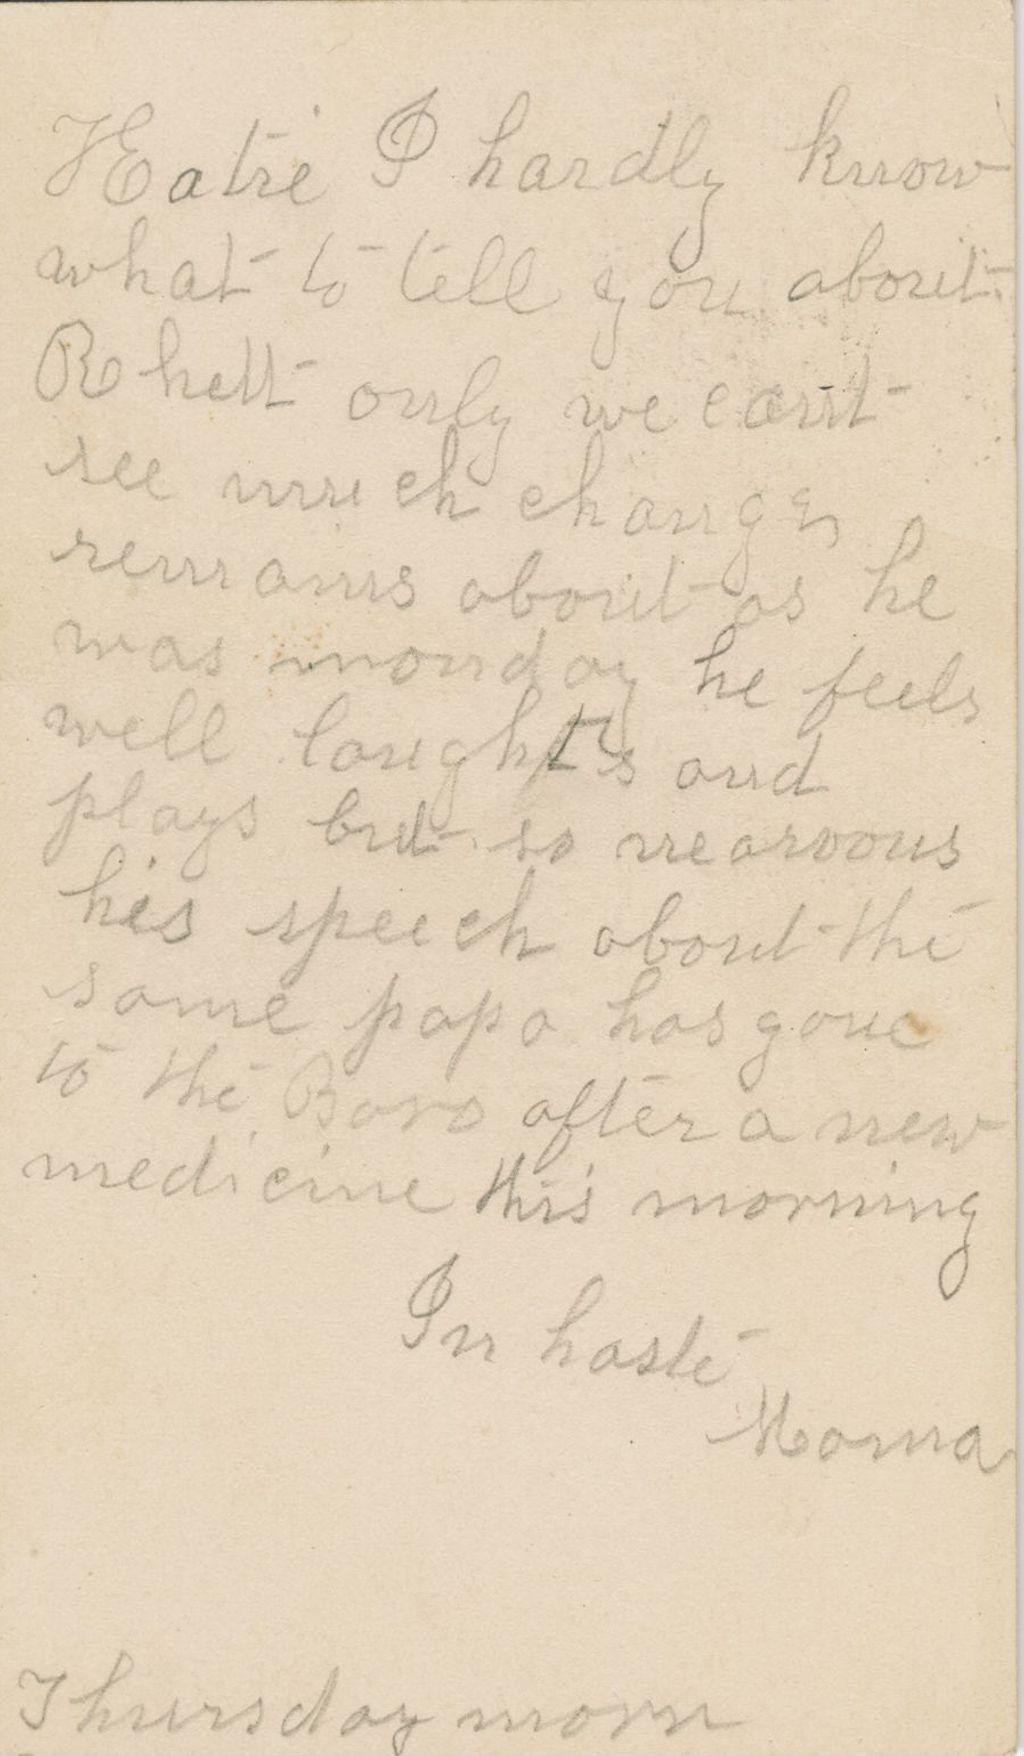 Hatie I hardly know
what to tell you about
Rhett only we cant
see much change
remains about as he
was monday he feels
well laughts and
plays but so nearvous
his speech about the
same papa has gone
to the Boro after a new
medicine this morning
In haste
Mama
Thursday morn